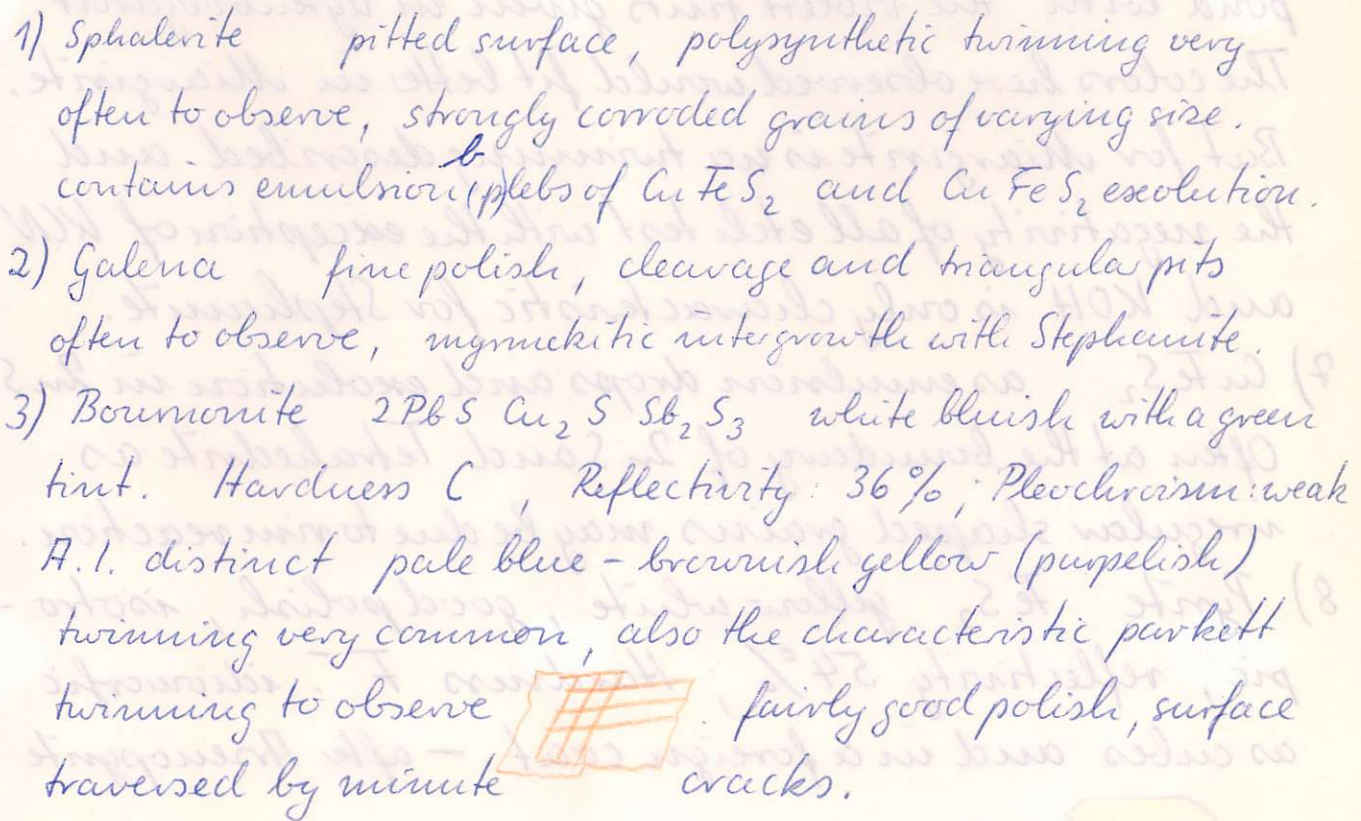 1) Sphalerite pitted surface, polysynthetic twinning very
often to observe, strongly corroded grains of varying size.
contains emulsion b(p)lebs of CuFeS2 and CuFeS2 exolution.
2) Galena fine polish, cleavage and triangular pits
often to observe, myrmekitic intergrowth with Stephanite.
3) Bournonite 2PbS Cu2S Sb2S3 white bluish with a green
tint. Hardness C, Reflectivity: 36%; Pleochroism: weak
A.I. distinct pale blue – brownish yellow (purpelish)
twinning very common, also the characteristic parkett
twinning to observe fairly good polish, surface
traversed by minute cracks.